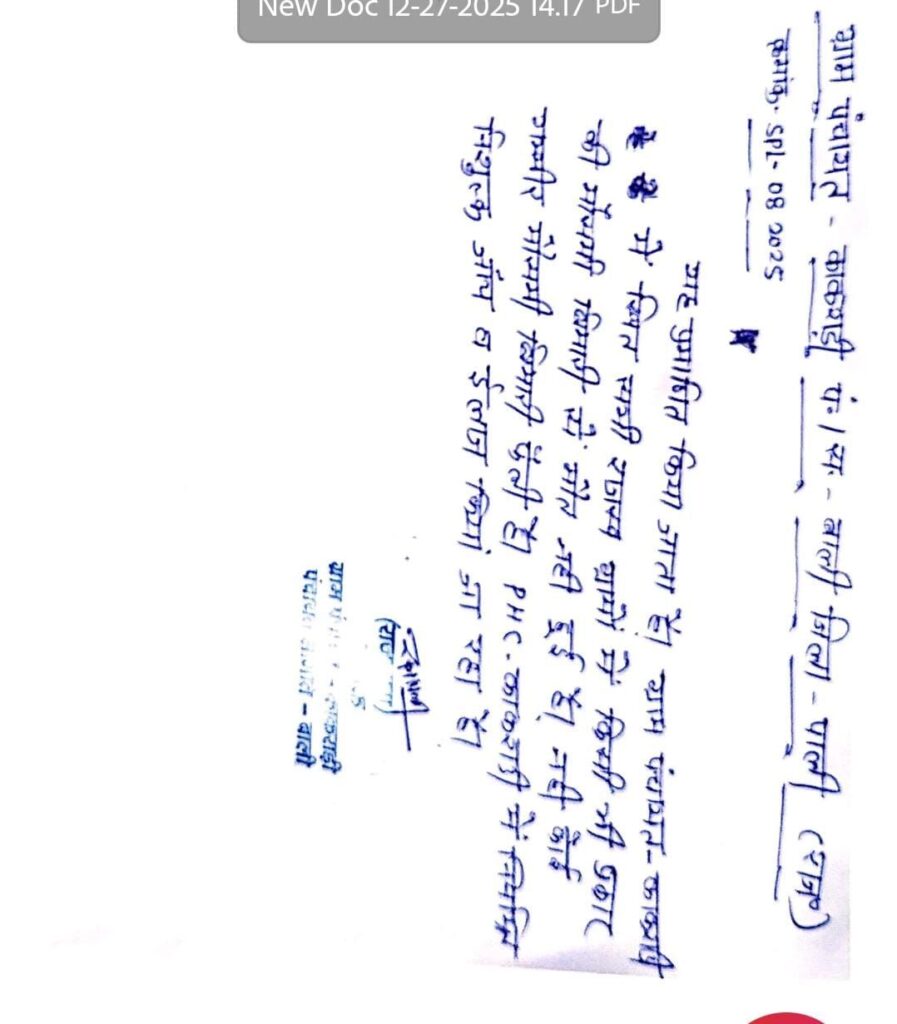 New Doc 12-27-2025 14.17 PDF
ग्राम पंचायत - काकराड़ी पं/स - बाली जिला - पाली (राज०)
क्रमांक. SPL- 08 2025
यह प्रमाणित किया जाता है। ग्राम पंचायत - काकराड़ी
में स्थित सभी राजस्व ग्रामों में किसी भी प्रकार
की मौसमी बिमारी से मौत नही हुई है। नही कोई
गम्भीर मौसमी बिमारी फैली है। PHC - काकराड़ी में नियमित
निशुल्क जांच व ईलाज किया जा रहा है।
ग्राम
काकराड़ी
पंचायत समिति - बाली